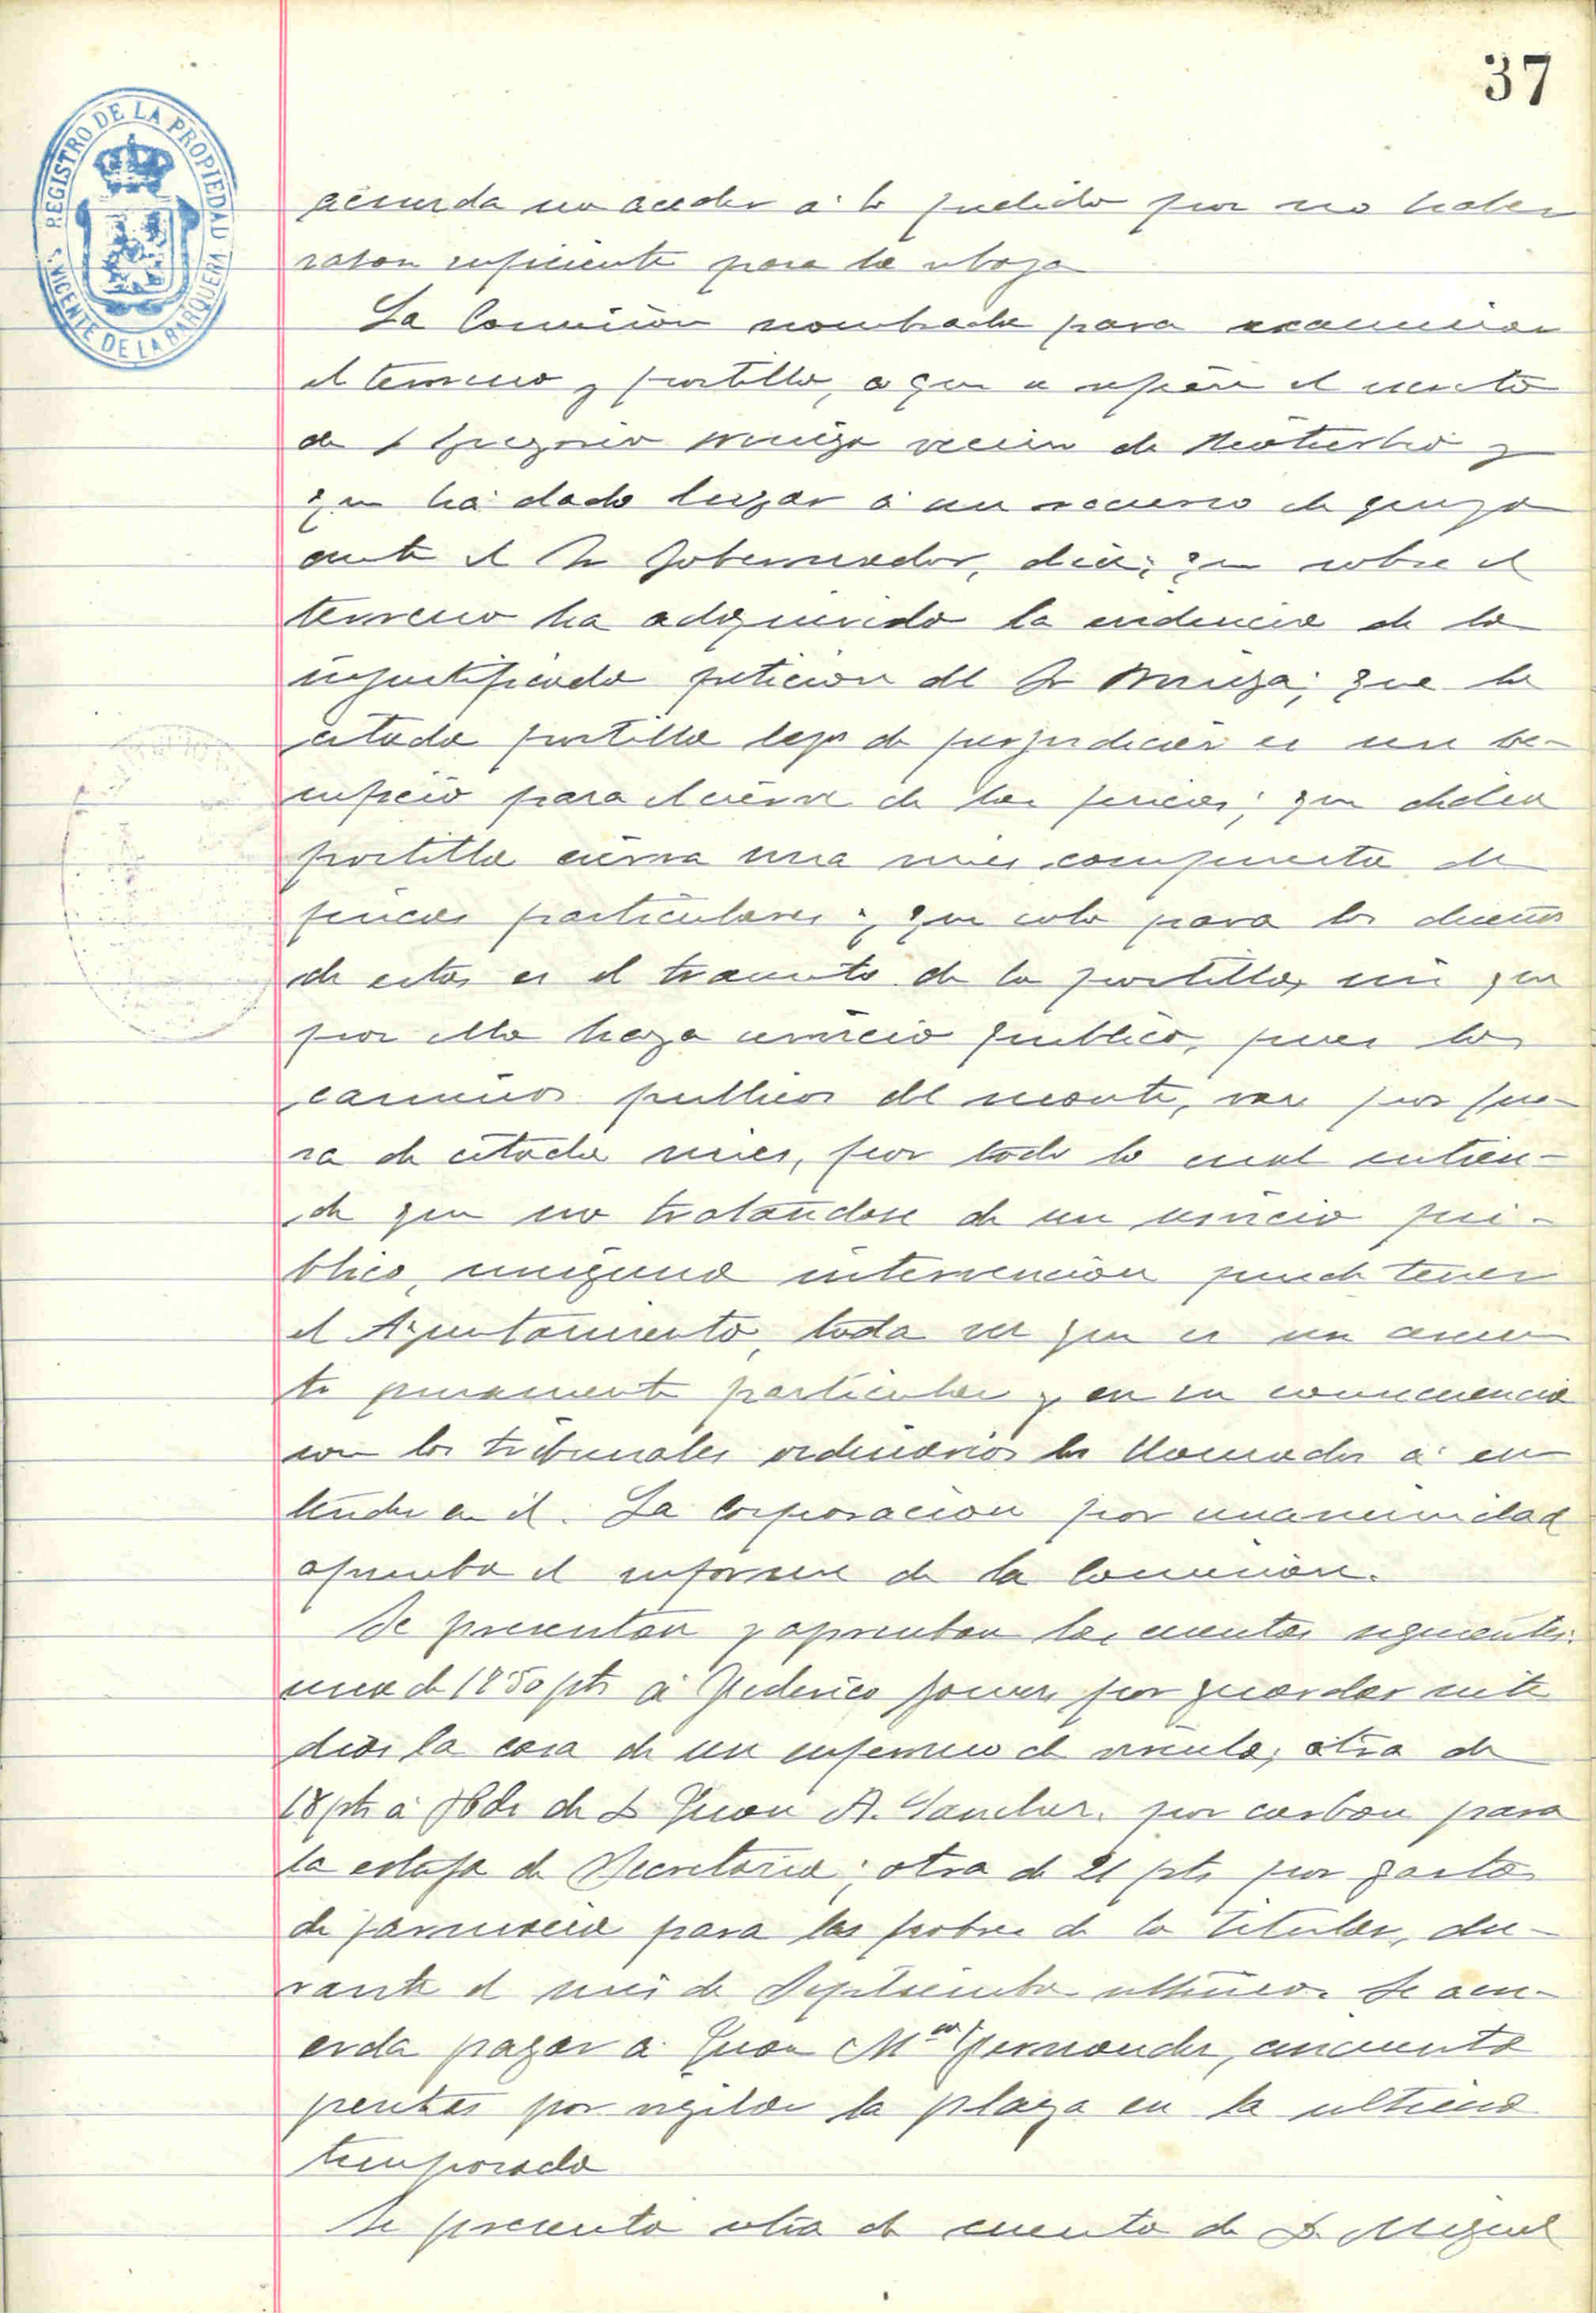 37
REGISTRO DE LA PROPIEDAD
VICENTE DE LA BARQUERA
acuerda no acceder á lo pedido por no haber
razon suficiente para la
La Comision nombrada para examinar
el terreno y portilla, a que se refiere el escrito
de D Gregorio Muniga vecino de y
que ha dado lugar á un recurso de queja
ante el Sr Gobernador, dice; que sobre el
terreno ha adquirido la evidencia de la
injustificada peticion del Sr Muniga; que la
citada portilla lejos de perjudicar es un be-
neficio para el cierre de las fincas; que dicha
portilla cierra una mies compuesta de
fincas particulares y que solo para los dueños
de estas es el transito de la portilla, sin que
por ella haya servicio publico, pues los
caminos publicos del monte, van por fue-
ra de citada mies, por todo lo cual entien-
de que no tratandose de un servicio pú-
blico, ninguna intervencion puede tener
el Ayuntamiento, toda vez que es un asun
to puramente particular y en su consecuencia
son los tribunales ordinarios los llamados á en
tender en él. La corporacion por unanimidad
aprueba el informe de la Comision.
Se presentan y aprueban las cuentas siguientes:
una de pts á Federico por guardar siete
dias la casa de un enfermo de viruela; otra de
18 pts á de D Juan A. Sanchez, por carbon para
la estufa de Secretaria; otra de 21 pts por gastos
de farmacia para los pobres de la titular, du-
rante el mes de Septiembre ultimo. Se acu-
erda pagar a Juan Mª Fernandez, cincuenta
pesetas por vigilar la plaza en la ultima
temporada
Se presenta otra de cuenta de D. Miguel